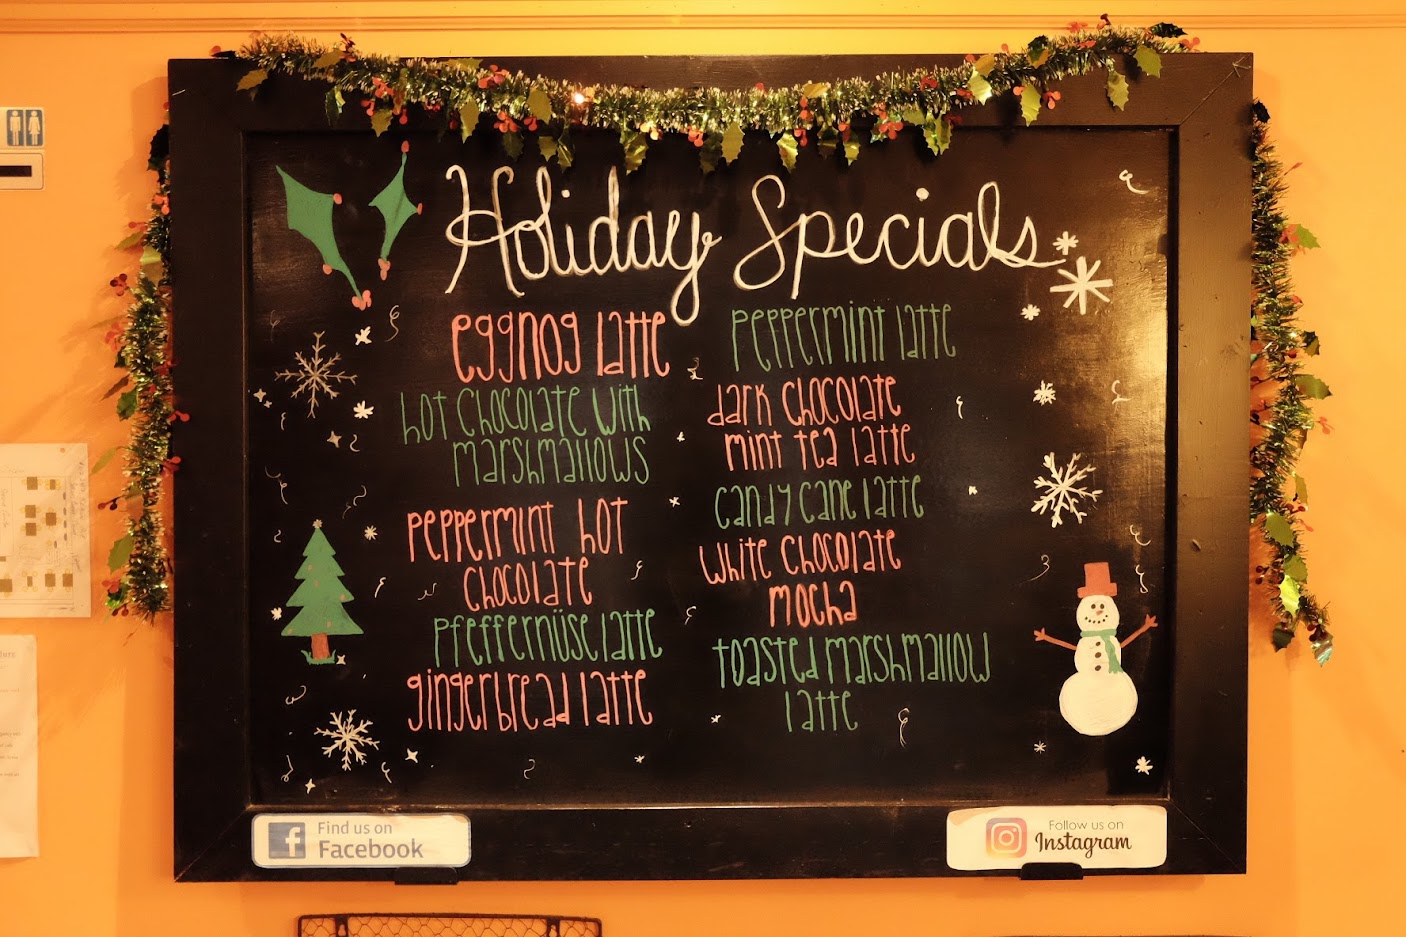 Holiday Specials
eggnog latte
hot chocolate with
marshmallows
peppermint hot
chocolate
pfeffernüse latte
gingerbread latte
peppermint latte
dark chocolate
mint tea latte
candy cane latte
white chocolate
mocha
toasted marshmallow
latte
Find us on
Facebook
Follow us on
Instagram